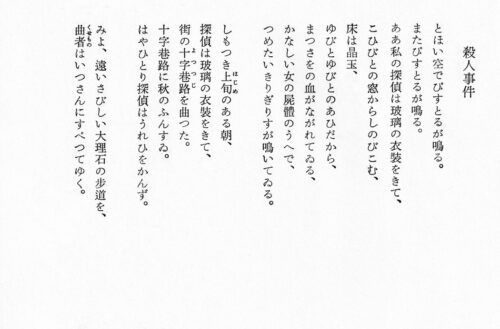 殺人事件
とほい空でぴすとるが鳴る。
またぴすとるが鳴る。
ああ私の探偵は玻璃の衣裝をきて、
こひびとの窓からしのびこむ、
床は晶玉、
ゆびとゆびとのあひだから、
まつさをの血がながれてゐる、
かなしい女の屍體のうへで、
つめたいきりぎりすが鳴いてゐる。
しもつき上旬のある朝、
探偵は玻璃の衣裝をきて、
街の十字巷路を曲つた。
十字巷路に秋のふんすゐ。
はやひとり探偵はうれひをかんず。
みよ、遠いさびしい大理石の歩道を、
曲者はいつさんにすべつてゆく。